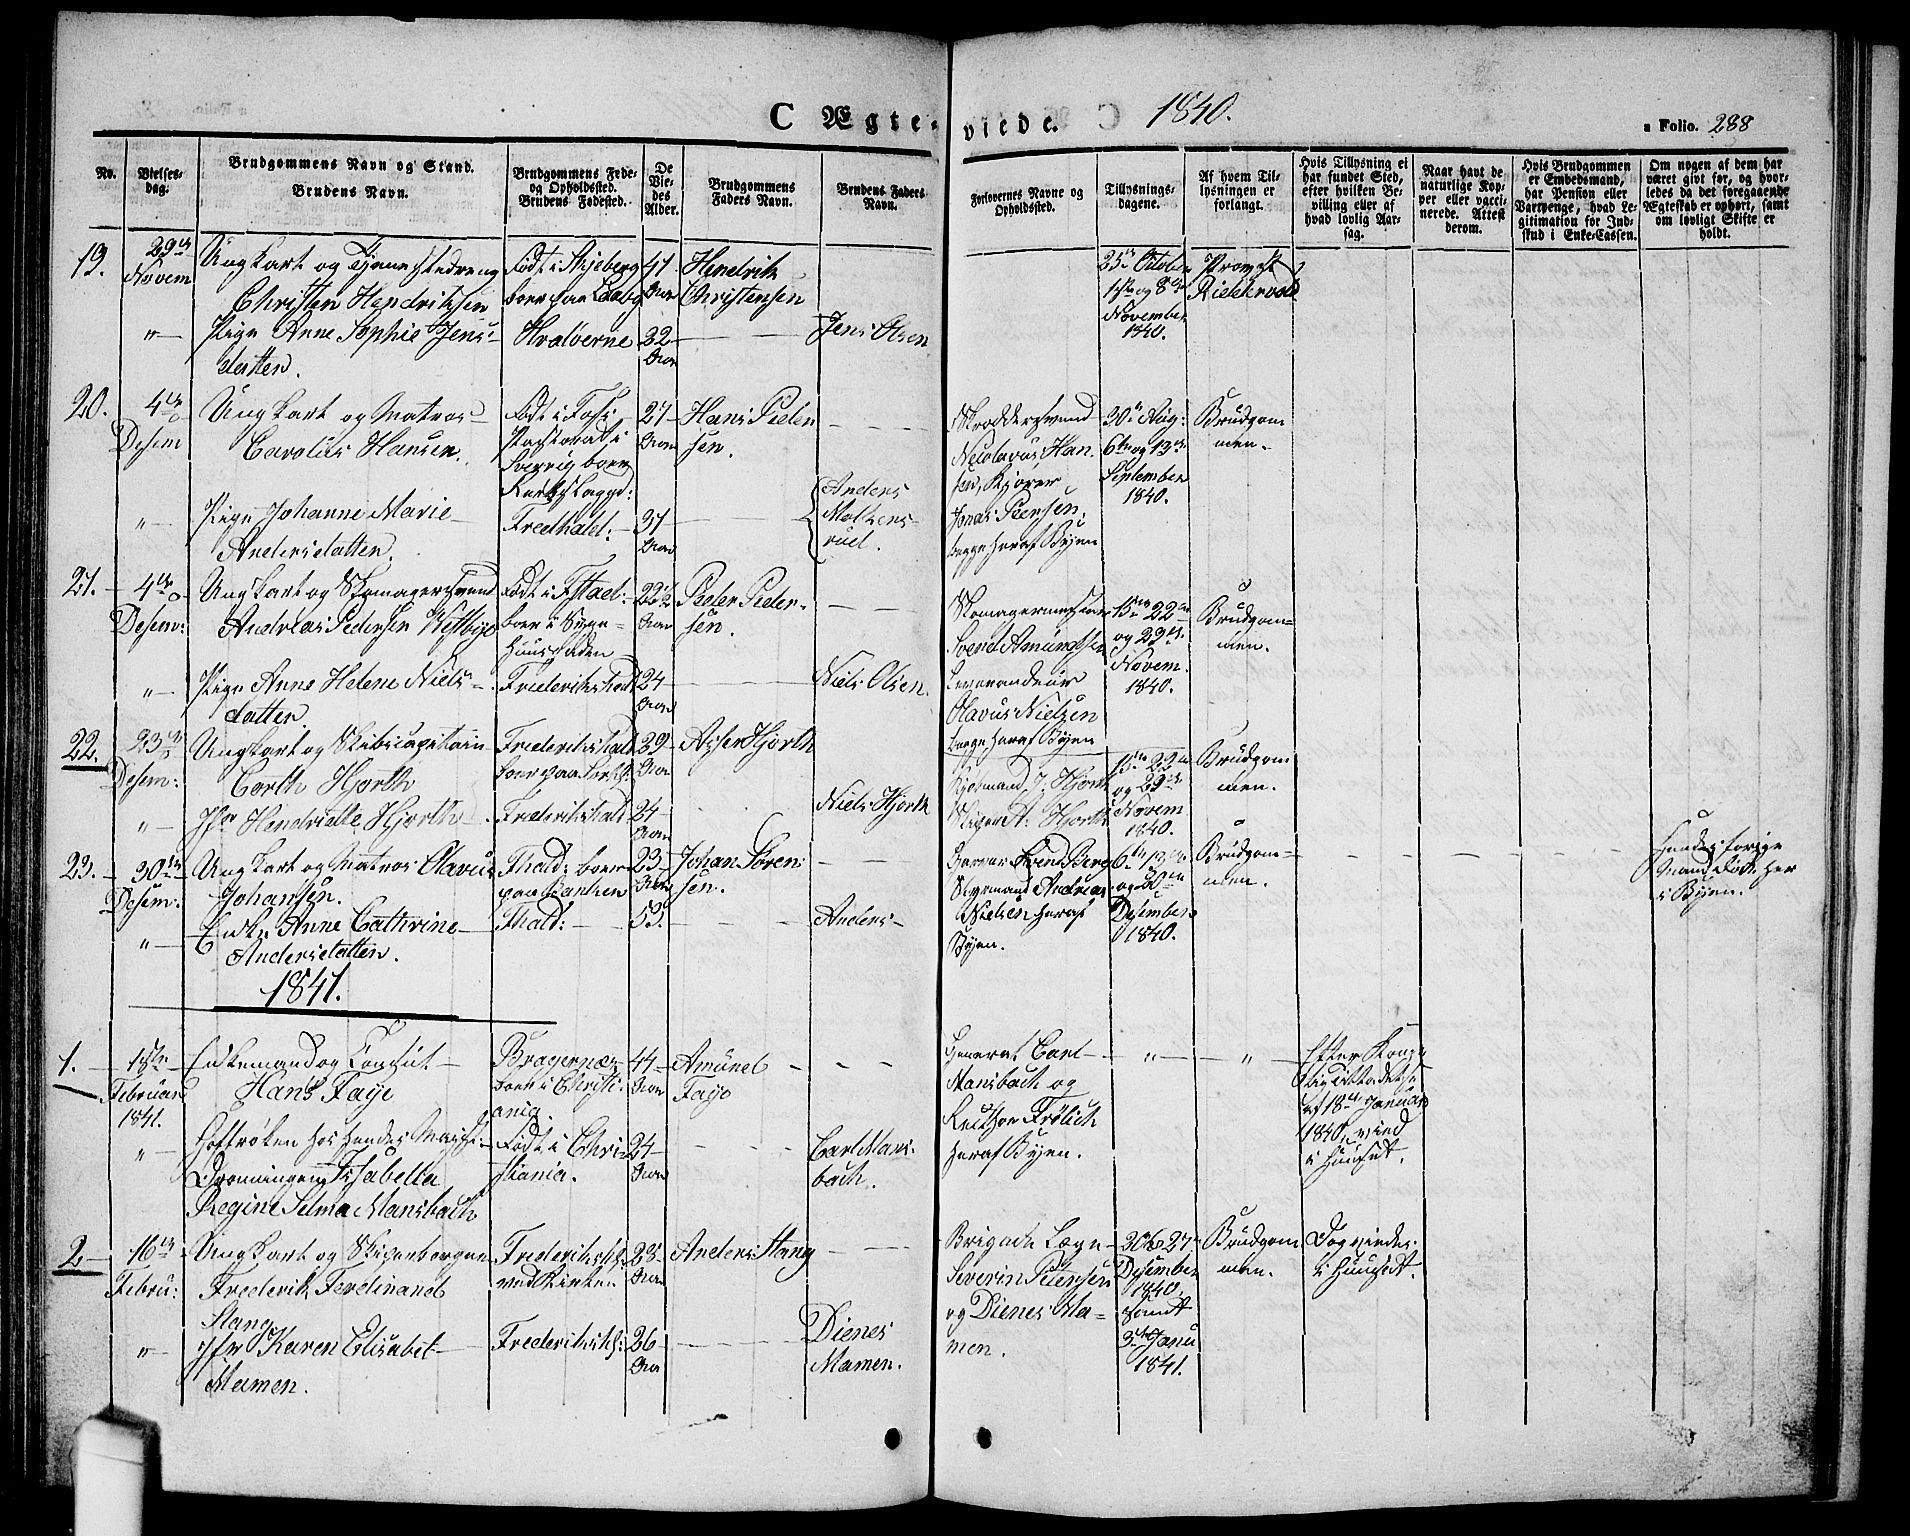 C Ægte-
viede.
1840.
a Folio. 288
No.
Vielses-
dag:
Brudgommens Navn og Stand.
Brudens Navn.
Brudgommens Føde-
og Opholdssted.
Brudens Fødested.
De
Vie-
des
Alder.
Brudgommens
Faders Navn.
Brudens Faders
Navn.
Forlovernes Navne og
Opholdssted.
Tillysnings-
dagene.
Af hvem Til-
lysningen er
forlangt.
Hvis Tillysning ei
har fundet Sted,
efter hvilken Be-
villing eller af
hvad lovlig Aar-
sag.
Naar havt de
naturlige Kop-
per eller vacci-
nerede. Attest
derom.
Hvis Brudgommen
er Embedsmand,
har Pension eller
Vartpenge, hvad Le-
gitimation for Ind-
skud i Enke-Cassen.
Om nogen af dem har
været givt før, og hvor-
ledes da det foregaaende
Ægteskab er ophørt, samt
om lovligt Skifte er
holdt.
19.
29de
Novem
Ungkarl og Tjenestedreng
Christen Hendriksen
Født i
boer paa
41
Aar
Hendrik
Christensen
25de October
1ste og 8de
November
1840.
Provst
"
Pige Anne Sophie Jens-
datter.
Hvalöerne
32
Aar
Jens Olsen
20.
4de
Desem
Ungkarl og Matros
Carolus Hansen.
Født i
Pastorad i
Sverrig boer
27
Aar
Hans Peter
sen.
Skræddersvend
Nicolavus Han-
sen,
Jonas
begge heraf Byen
30te Aug:
6te og 13de
September
1840.
Brudgom
men.
"
Pige Johanne Marie
Andersdatter.
Fredhald:
37
Aar
Anders
21.
4de
Desem:
Ungkarl og Skomagersvend
Andreas Pedersen Westbye
Født i Fhald:
boer i Syge-
Huusgaden
22½
Aar
Peder Peder-
sen.
Skomagermester
Svend Amundsen
Olavus Nielsen
begge heraf Byen
15de 22de
og 29de
Novem.
1840.
Brudgom-
men.
"
Pige Anne Helene Niels-
datter.
Frederikshald
24
Aar
Niels Olsen.
22.
23de
Desem:
Ungkarl og Skibscapitain
Hjorth
Frederikshald
boer paa
29
Aar
Hjorth
Hjorth
Hjorth
15de 22de
og 29de
Novem
1840.
Brudgom
men.
"
Jfr Hendriette Hjorth
Frederikshald
24
Aar
Niels Hjorth
23.
30te
Desem:
Ungkarl og Matros Olavus
Johansen.
Fhald: boer
paa Banken
23
Aar
Johan Søren-
sen.
Svend Berg
Styrmand Andreas
Nielsen heraf
Byen.
6te 13de
og 20de
Desember
1840.
Brudgom-
men.
Hendes forige
Mand Døde her
i Byen.
"
Enke Anne Cathrine
Andersdatter.
Fhald:
53.
Anders
1841.
1.
1ste
Februar
1841.
Enkemand og Consul
Hans Faye
Bragernæs
boer i Christi-
ania.
44
Aar
Amund
Faye
General Carl
Mansbach og
Frølich
heraf Byen.
"
"
Efter Konge-
lig Tilladelse
af 18de Januar
1840, viede
i Huuset.
"
Hoffrøken hos Hendes Maje-
Dronningen Isabella
Regine Selma Mansbach
Født i Chri-
stiania.
24
Aar
Carl Mans-
bach.
2.
16de
Febru:
Ungkarl og
Frederik Ferdinand
Stang
Frederiksh:
ved Kirken
28
Aar
Anders Stang
Brigade Læge
Severin Petersen
og Dienes Ma-
men.
20de 27de
Desember
1840.
samt
3de Janu
1841.
Brudgom
men.
Dog viedes
i Huuset.
"
Jfr Karen Elisabet
Mamen.
Frederiksh:
26
Aar
Dienes
Mamen.